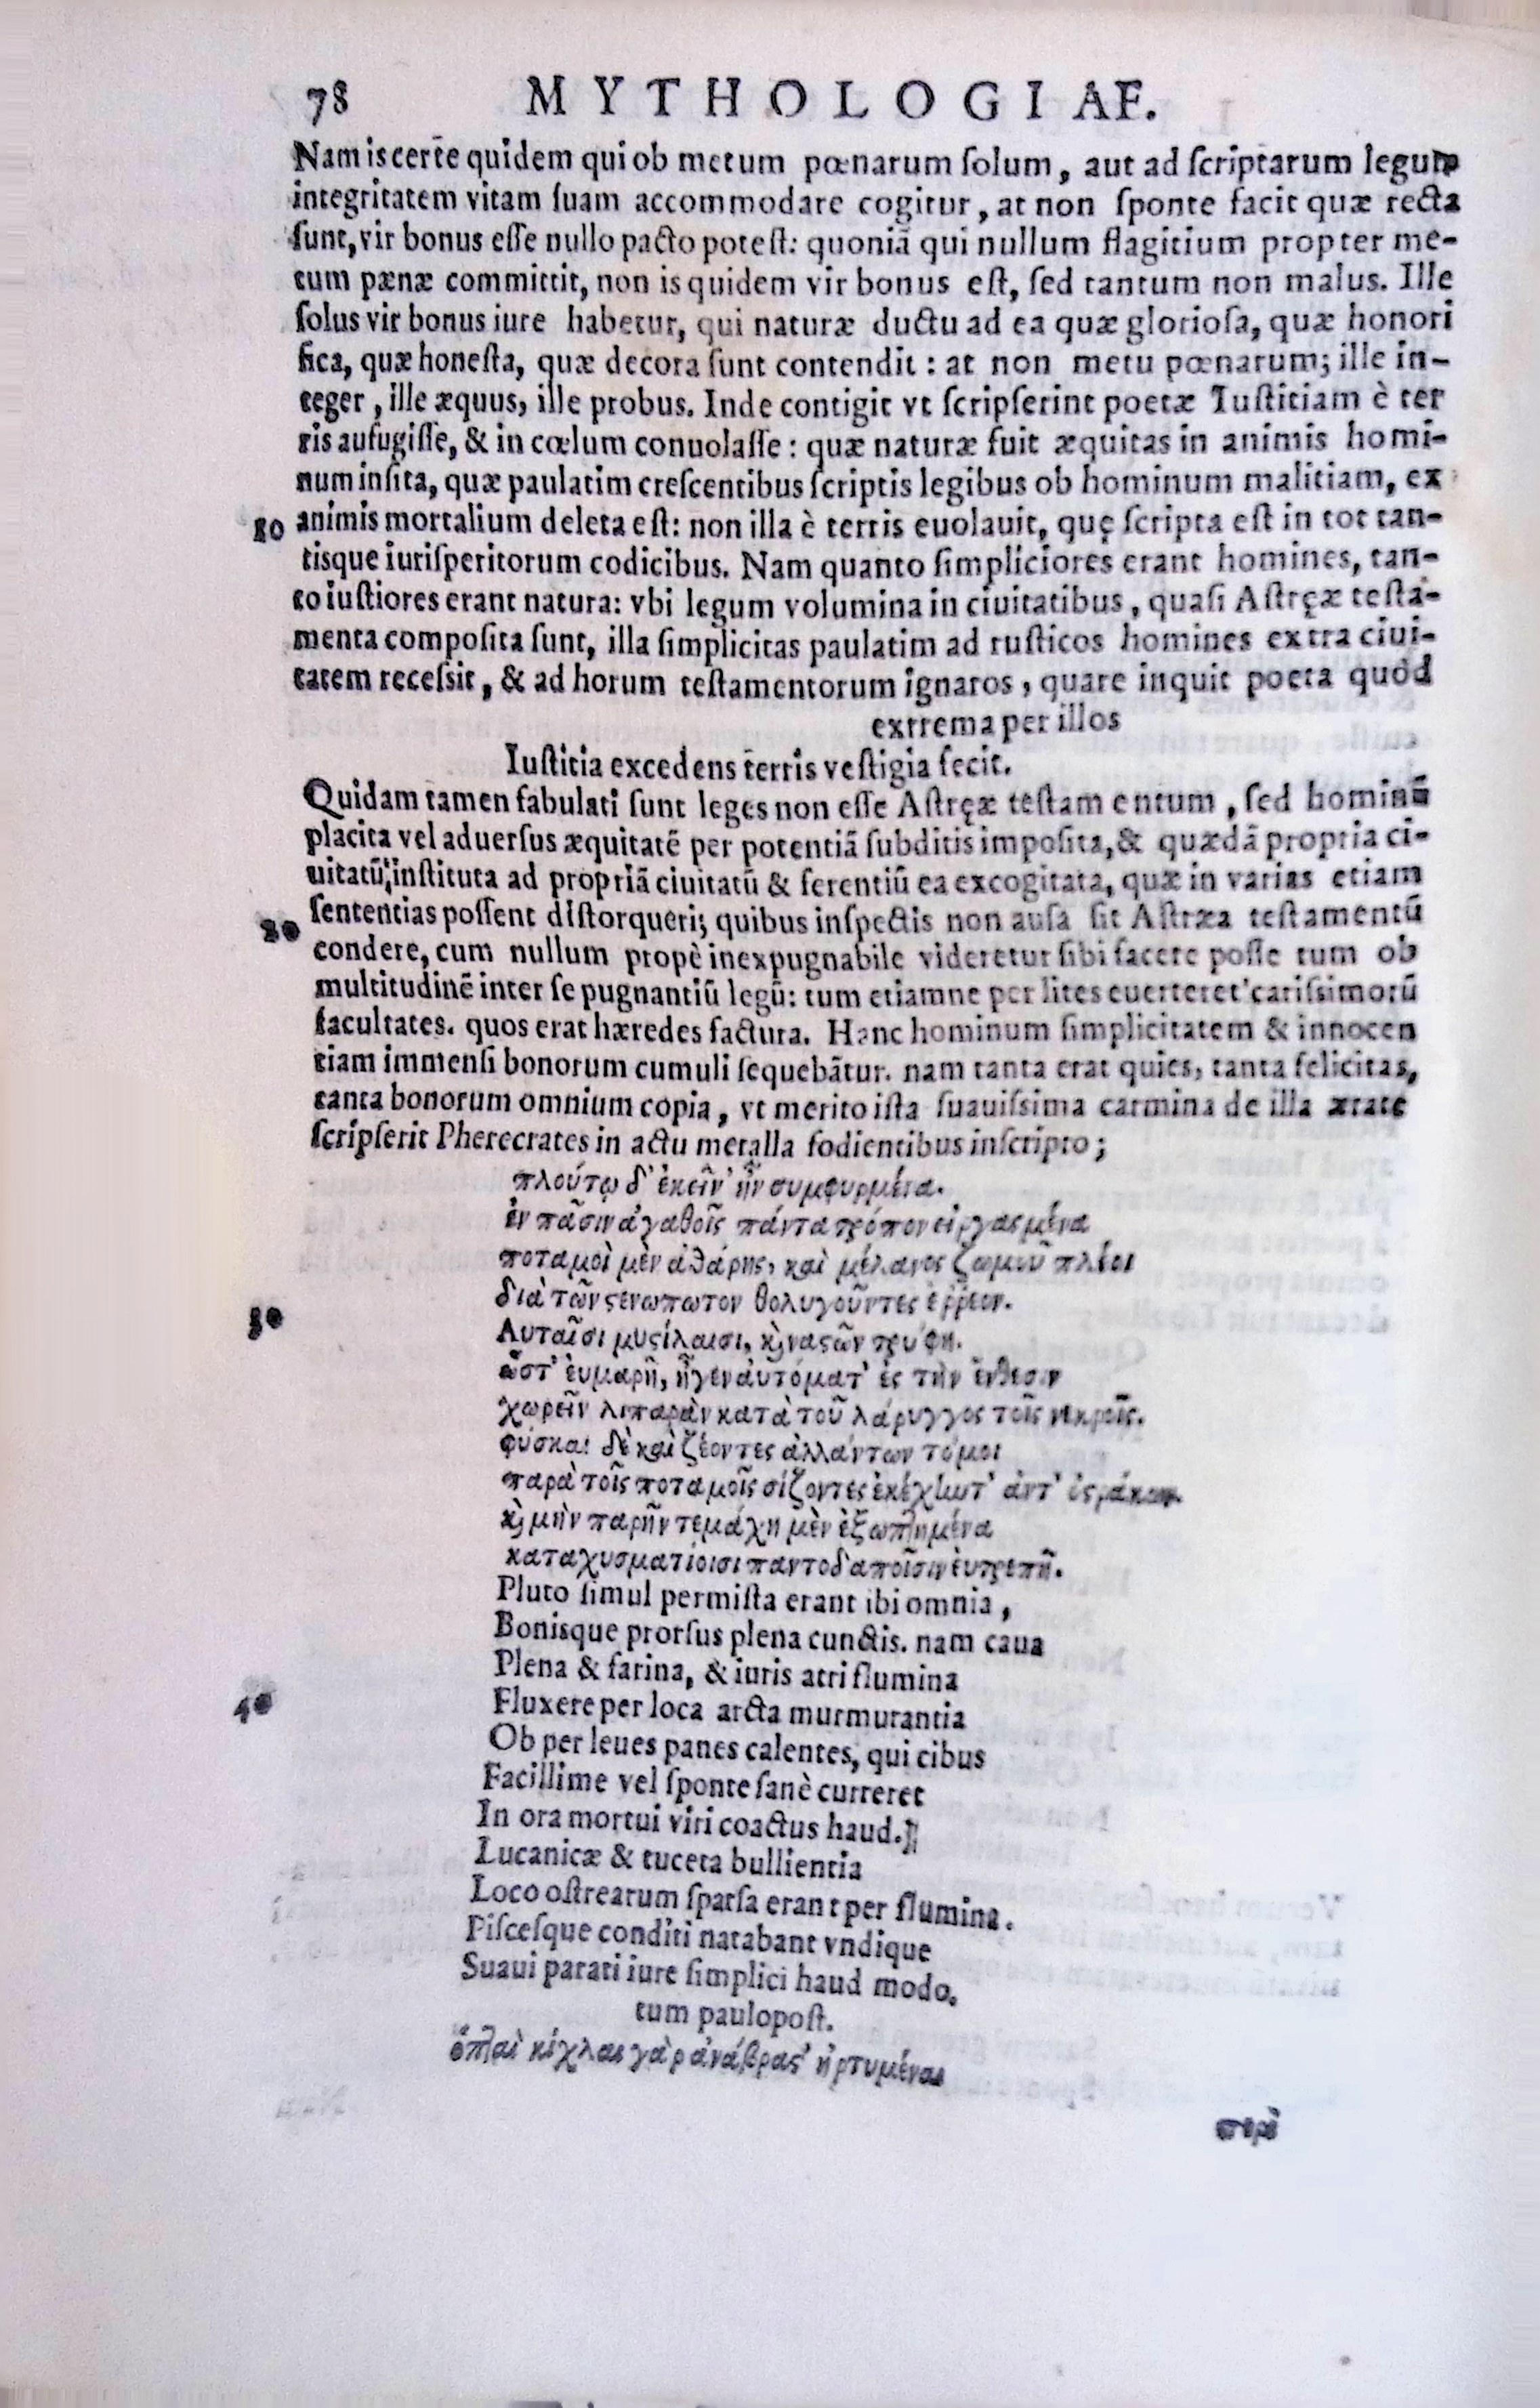 78 MYTHOLOGIAE.
Nam is certe quidem qui ob metum pœnarum ſolum, aut ad ſcriptarum legum
integritatem vitam ſuam accommodare cogitur, at non ſponte facit quæ recta
ſunt, vir bonus eſſe nullo pacto poteſt: quoniã qui nullum flagitium propter me-
tum pænæ committit, non is quidem vir bonus eſt, ſed tantum non malus. Ille
ſolus vir bonus iure habetur, qui naturæ ductu ad ea quæ glorioſa, quæ honori
fica, quæ honeſta, quæ decora ſunt contendit: at non metu pœnarum; ille in-
teger, ille æquus, ille probus. Inde contigit vt ſcripſerint poetæ Iuſtitiam è ter
ris aufugiſſe, & in cœlum conuolaſſe: quæ naturæ fuit æquitas in animis homi-
num inſita, quæ paulatim creſcentibus ſcriptis legibus ob hominum malitiam, ex
10 animis mortalium deleta eſt: non illa è terris euolauit, quę ſcripta eſt in tot tan-
tisque iuriſperitorum codicibus. Nam quanto ſimpliciores erant homines, tan-
to iuſtiores erant natura: vbi legum volumina in ciuitatibus, quaſi Aſtręæ teſta-
menta compoſita ſunt, illa ſimplicitas paulatim ad ruſticos homines extra ciui-
tatem receſsit, & ad horum teſtamentorum ignaros, quare inquit poeta quòd
extrema per illos
Iuſtitia excedens terris veſtigia fecit.
Quidam tamen fabulati ſunt leges non eſſe Aſtręæ teſtamentum, ſed hominũ
placita vel aduerſus æquitatẽ per potentiã ſubditis impoſita, & quædã propria ci-
uitatũ inſtituta ad propriã ciuitatũ & ferentiũ ea excogitata, quæ in varias etiam
20 ſententias poſſent diſtorqueri; quibus inſpectis non auſa ſit Aſtræa teſtamentũ
condere, cum nullum propè inexpugnabile videretur ſibi facere poſſe tum ob
multitudinẽ inter ſe pugnantiũ legũ: tum etiamne per lites euerteret cariſsimorũ
facultates. quos erat hæredes factura. Hanc hominum ſimplicitatem & innocen
tiam immenſi bonorum cumuli ſequebãtur. nam tanta erat quies, tanta felicitas,
tanta bonorum omnium copia, vt merito iſta ſuauiſsima carmina de illa ætate
ſcripſerit Pherecrates in actu metalla fodientibus inſcripto;
πλούτῳ δ᾽ ἐκεῖν᾽ ἦν συμφυρμένα.
ἐν πᾶσιν ἀγαθοῖς πάντα τρόπον εἰργασμένα
ποταμοὶ μὲν ἀθάρης, καὶ μέλανος ζωμοῦ πλέοι
διὰ τῶν ϛενωπωτον θολυγοῦντες ἐῤῥεον.
30 Αυταῖσι μυϛίλαισι, κὶ ναϛῶν τρύφη.
ὥστ᾽ ἐυμαρῆ, ἦγεν ἀυτόματ᾽ ἐς τὴν ἔνθεσιν
χωρεῖν λιπαρὰν κατὰ τοῦ λάρυγγος τοῖς νεκροῖς.
φύσκαι δὲ καὶ ζέοντες ἀλλάντων τόμοι
παρὰ τοῖς ποταμοῖς σίζοντες ἐκέχυντ᾽ ἀντ᾽ ὀϛράκων.
κὶ μὴν παρῆν τεμάχη μὲν ἐξωπτημένα
καταχυσματίοισι παντοδαποῖσιν ἐυτρεπῆ.
Pluto ſimul permiſta erant ibi omnia,
Bonisque prorſus plena cunctis. nam caua
Plena & farina, & iuris atri flumina
40 Fluxere per loca arcta murmurantia
Ob per leues panes calentes, qui cibus
Facillime vel ſponte ſanè curreret
In ora mortui viri coactus haud.
Lucanicæ & tuceta bullientia
Loco oſtrearum ſparſa erant per flumina.
Piſceſque conditi natabant vndique
Suaui parati iure ſimplici haud modo.
tum paulopoſt.
ὀπταὶ κίχλαι γὰρ ἀνάβρας᾽ ἠρτυμέναι
περὶ